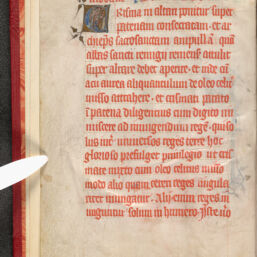 Crisma in altari ponitur super
patenam consecratam. et ar
chieps sacrosanctam ampullā quā
asseri remigii remensis attulit
super altare debet aperire. et inde cū
acu aurea aliquantulum de oleo celit
misso attrahere. et crismati parato
ī patena diligentius cum digito im
miscere ad inungendum regē. qui so
lus inter universos reges terre hoc
glorioso prefulget privilegio ut cris
mate mixto cum oleo celitus misso
modo alio quam ceteri reges singula
riter inungatur. Alii enim reges in
unguntur solum in humero. Iste vero